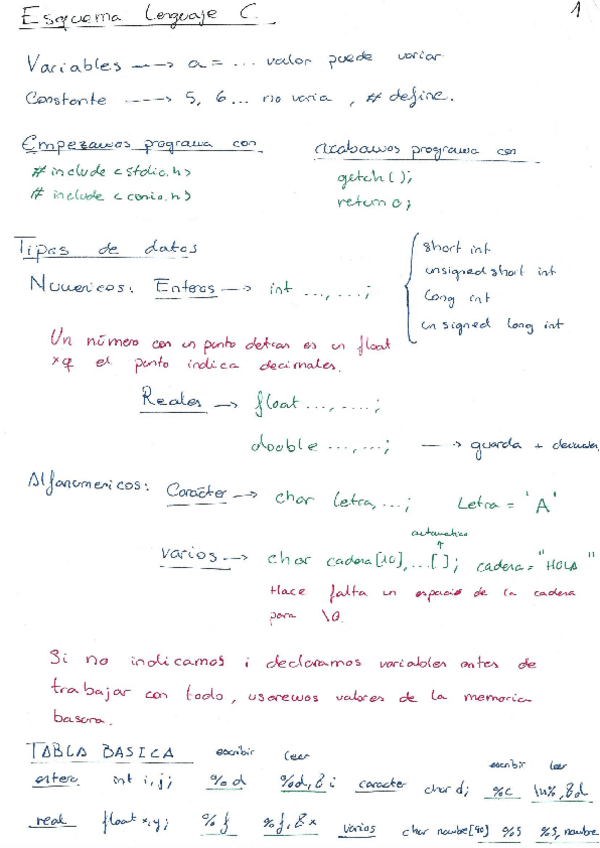 Esquema Lenguaje C. 1
Variables ---→ a = ... valor puede variar
Constante ----→ 5, 6... no varia, # define.
Empezamos programa con
# include <stdio.h>
# include <conio.h>
Acabamos programa con
getch();
return 0;
Tipos de datos
Numericos: Enteros --→ int ...,...;
short int
unsigned short int
long int
unsigned long int
Un número con un punto detras es un float
xq el punto indica decimales.
Reales → float ...,....;
double ...,...; —→ guarda +
Alfanumericos: Carácter --→ char letra,...; Letra = 'A'
automatico
↑
varios --→ char cadena[10],...[ ]; cadena = "HOLA"
Hace falta un espacio de la cadena
para \0.
Si no indicamos i declaramos variables antes de
trabajar con todo, usaremos valores de la memoria
basura.
TABLA BASICA escribir leer escribir leer
entero int i,j; %d %d,&i caracter char d; %c \n%,&d
real float x,y; %f %f,&x varios char nombre[40] %s %s,nombre